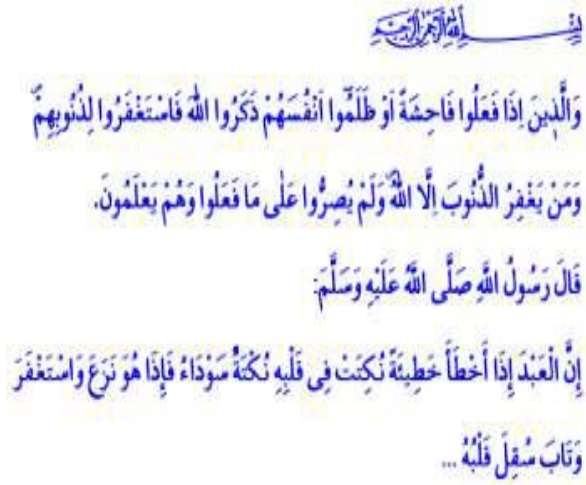 بِسْمِ اللّٰهِ الرَّحْمٰنِ الرَّحِيمِ
وَالَّذ۪ينَ اِذَا فَعَلُوا فَاحِشَةً اَوْ ظَلَمُٓوا اَنْفُسَهُمْ ذَكَرُوا اللّٰهَ فَاسْتَغْفَرُوا لِذُنُوبِهِمْۖ
وَمَنْ يَغْفِرُ الذُّنُوبَ اِلَّا اللّٰهُۖ وَلَمْ يُصِرُّوا عَلٰى مَا فَعَلُوا وَهُمْ يَعْلَمُونَ.
قَالَ رَسُولُ اللَّهِ صَلَّى اللَّهُ عَلَيْهِ وَسَلَّمَ:
إِنَّ الْعَبْدَ إِذَا أَخْطَأَ خَطِيئَةً نُكِتَتْ فِى قَلْبِهِ نُكْتَةٌ سَوْدَاءُ فَإِذَا هُوَ نَزَعَ وَاسْتَغْفَرَ
وَتَابَ سُقِلَ قَلْبُهُ ...